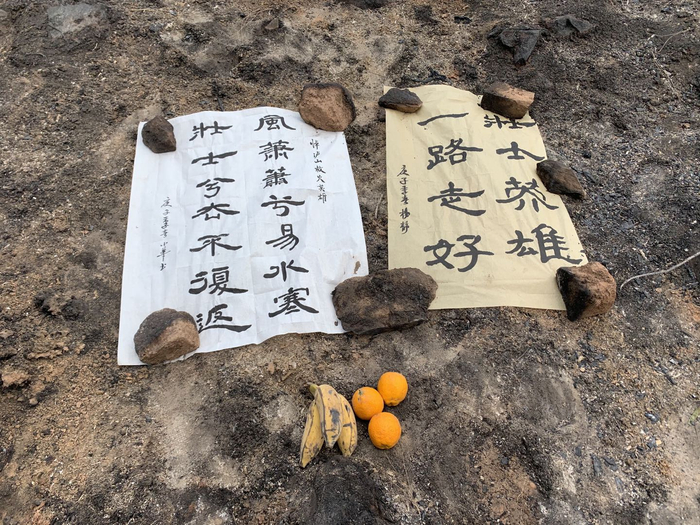 悼泸山救火英雄
風蕭蕭兮易水寒
壯士兮去不復返
庚子季春
壯士英雄
一路走好
庚子季春